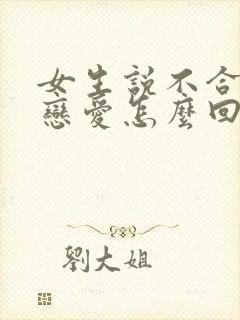 女生説不合
戀愛怎麼回
劉大姐